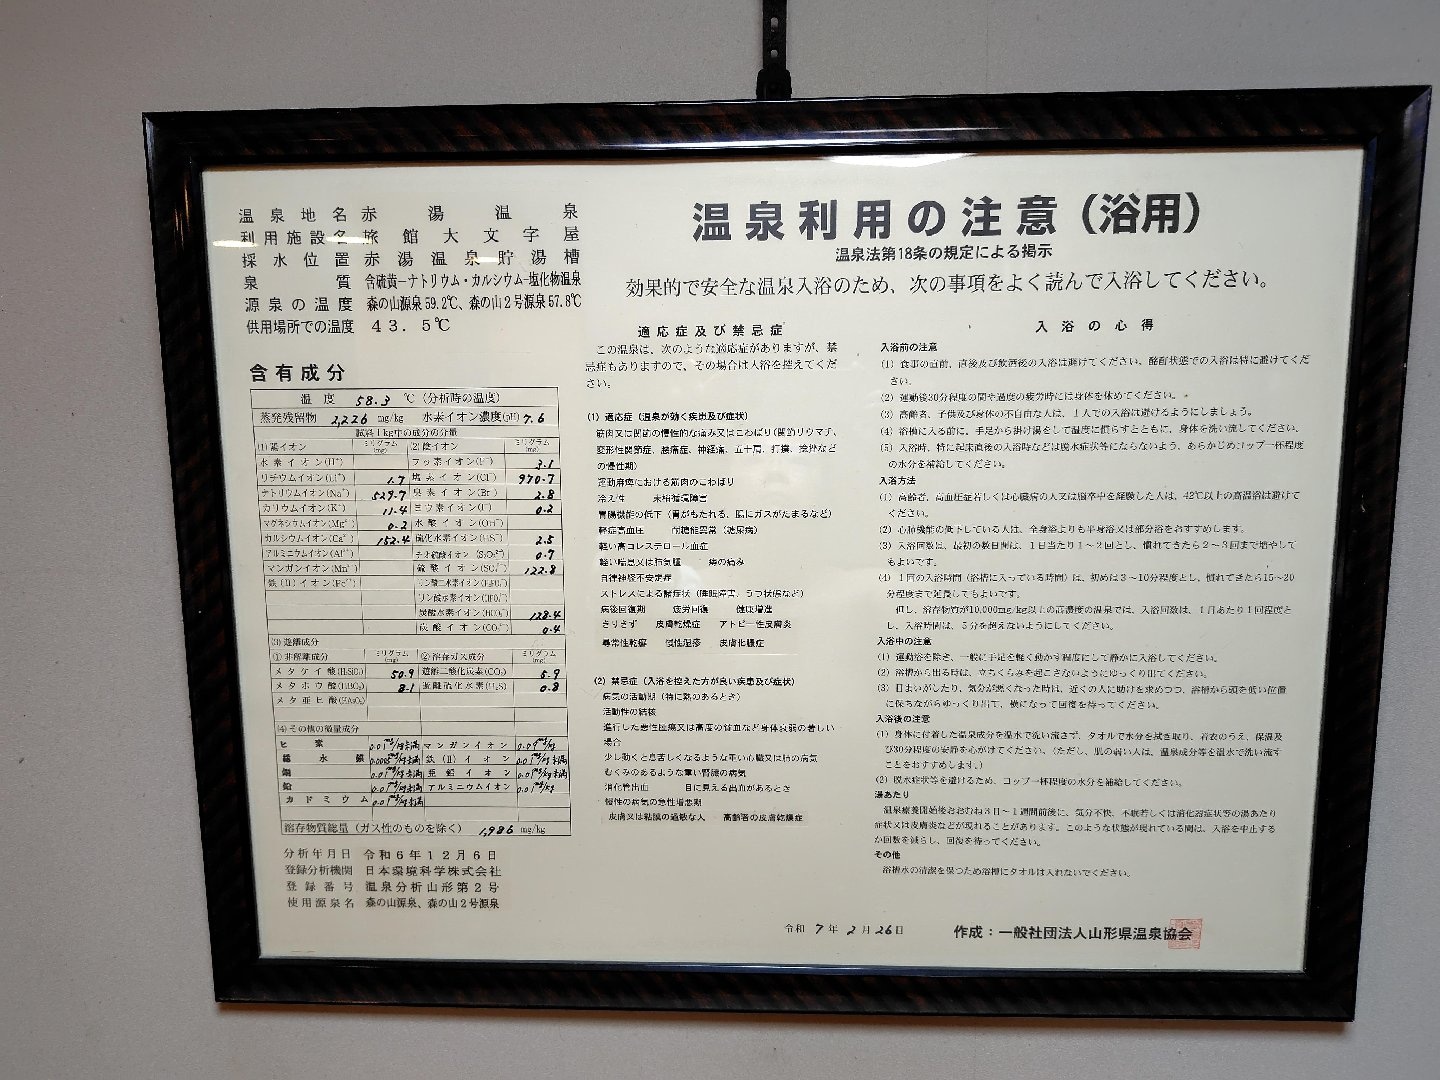 温泉地名 赤湯温泉
利用施設名 旅館大文字屋
採水位置 赤湯温泉貯湯槽
泉質 含硫黄-ナトリウム・カルシウム-塩化物温泉
源泉の温度 森の山源泉59.2℃、森の山2号源泉57.8℃
供用場所での温度 43.5℃
含有成分
温度 58.3 ℃(分析時の温度)
蒸発残留物 2,226 mg/kg 水素イオン濃度(pH) 7.6
試料1kg中の成分の分量
(1)陽イオン ミリグラム(mg) (2)陰イオン ミリグラム(mg)
水素イオン(H⁺) フッ素イオン(F⁻) 3.1
リチウムイオン(Li⁺) 1.7 塩素イオン(Cl⁻) 970.7
ナトリウムイオン(Na⁺) 529.7 臭素イオン(Br⁻) 2.8
カリウムイオン(K⁺) 11.4 ヨウ素イオン(I⁻) 0.2
マグネシウムイオン(Mg²⁺) 0.2 水酸イオン(OH⁻)
カルシウムイオン(Ca²⁺) 152.4 硫化水素イオン(HS⁻) 2.5
アルミニウムイオン(Al³⁺) チオ硫酸イオン(S₂O₃²⁻) 0.7
マンガンイオン(Mn²⁺) 硫酸イオン(SO₄²⁻) 122.8
鉄(II)イオン(Fe²⁺) リン酸二水素イオン(H₂PO₄⁻)
リン酸水素イオン(HPO₄²⁻)
炭酸水素イオン(HCO₃⁻) 128.4
炭酸イオン(CO₃²⁻) 0.4
(3)遊離成分
①非解離成分 ミリグラム(mg) ②溶存ガス成分 ミリグラム(mg)
メタケイ酸(H₂SiO₃) 50.9 遊離二酸化炭素(CO₂) 5.9
メタホウ酸(HBO₂) 8.1 遊離硫化水素(H₂S) 0.8
メタ亜ヒ酸(HAsO₂)
(4)その他の微量成分
ヒ素 0.01mg/kg未満 マンガンイオン 0.09mg/kg
総水銀 0.0005mg/kg未満 鉄(II)イオン 0.01mg/kg未満
銅 0.01mg/kg未満 亜鉛イオン 0.01mg/kg未満
鉛 0.01mg/kg未満 アルミニウムイオン 0.01mg/kg
カドミウム 0.01mg/kg未満
溶存物質総量(ガス性のものを除く) 1,986 mg/kg
分析年月日 令和6年12月6日
登録分析機関 日本環境科学株式会社
登録番号 温泉分析山形第2号
使用源泉名 森の山源泉、森の山2号源泉
温泉利用の注意(浴用)
温泉法第18条の規定による掲示
効果的で安全な温泉入浴のため、次の事項をよく読んで入浴してください。
適応症及び禁忌症
この温泉は、次のような適応症がありますが、禁
忌症もありますので、その場合は入浴を控えてくだ
さい。
(1) 適応症(温泉が効く疾患及び症状)
筋肉又は関節の慢性的な痛み又はこわばり(関節リウマチ、
変形性関節症、腰痛症、神経痛、五十肩、打撲、捻挫など
の慢性期)
運動麻痺における筋肉のこわばり
冷え性 末梢循環障害
胃腸機能の低下(胃がもたれる、腸にガスがたまるなど)
軽症高血圧 耐糖能異常(糖尿病)
軽い高コレステロール血症
軽い喘息又は肺気腫 痔の痛み
自律神経不安定症
ストレスによる諸症状(睡眠障害、うつ状態など)
病後回復期 疲労回復 健康増進
きりきず 皮膚乾燥症 アトピー性皮膚炎
尋常性乾癬 慢性湿疹 皮膚化膿症
(2) 禁忌症(入浴を控えた方が良い疾患及び症状)
病気の活動期(特に熱のあるとき)
活動性の結核
進行した悪性腫瘍又は高度の貧血など身体衰弱の著しい
場合
少し動くと息苦しくなるような重い心臓又は肺の病気
むくみのあるような重い腎臓の病気
消化管出血 目に見える出血があるとき
慢性の病気の急性増悪期
皮膚又は粘膜の過敏な人 高齢者の皮膚乾燥症
入浴の心得
入浴前の注意
(1) 食事の直前、直後及び飲酒後の入浴は避けてください、酩酊状態での入浴は特に避けてくだ
さい。
(2) 運動後30分程度の間や過度の疲労時には身体を休めてください。
(3) 高齢者、子供及び身体の不自由な人は、1人での入浴は避けるようにしましょう。
(4) 浴槽に入る前に、手足から掛け湯をして温度に慣らすとともに、身体を洗い流してください。
(5) 入浴時、特に起床直後の入浴時などは脱水症状等にならないよう、あらかじめコップ一杯程度
の水分を補給してください。
入浴方法
(1) 高齢者、高血圧症若しくは心臓病の人又は脳卒中を経験した人は、42℃以上の高温浴は避けて
ください。
(2) 心肺機能の低下している人は、全身浴よりも半身浴又は部分浴をおすすめします。
(3) 入浴回数は、最初の数日間は、1日当たり1～2回とし、慣れてきたら2～3回まで増やして
もよいです。
(4) 1回の入浴時間(浴槽に入っている時間)は、初めは3～10分程度とし、慣れてきたら15～20
分程度まで延長してもよいです。
但し、溶存物質が10,000mg/kg以上の高濃度の温泉では、入浴回数は、1日あたり1回程度と
し、入浴時間は、5分を超えないようにしてください。
入浴中の注意
(1) 運動浴を除き、一般に手足を軽く動かす程度にして静かに入浴してください。
(2) 浴槽から出る時は、立ちくらみを起こさないようにゆっくり出てください。
(3) 目まいがしたり、気分が悪くなった時は、近くの人に助けを求めつつ、浴槽から頭を低い位置
に保ちながらゆっくり出て、横になって回復を待ってください。
入浴後の注意
(1) 身体に付着した温泉成分を温水で洗い流さず、タオルで水分を拭き取り、着衣のうえ、保温及
び30分程度の安静を心がけてください。(ただし、肌の弱い人は、温泉成分等を温水で洗い流す
ことをおすすめします。)
(2) 脱水症状等を避けるため、コップ一杯程度の水分を補給してください。
湯あたり
温泉療養開始後おおむね3日～1週間前後に、気分不快、不眠若しくは消化器症状等の湯あたり
症状又は皮膚炎などが現れることがあります。このような状態が現れている間は、入浴を中止する
か回数を減らし、回復を待ってください。
その他
浴槽水の清潔を保つため浴槽にタオルは入れないでください。
令和 7年 2月26日
作成:一般社団法人山形県温泉協会